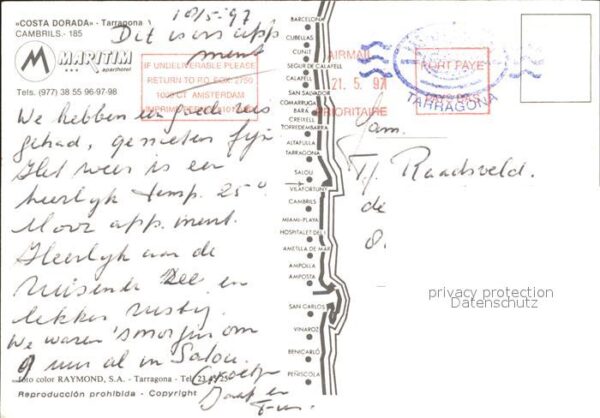 «COSTA DORADA» - Tarragona
CAMBRILS. - 185
18/5-97
Dit is ons app
ment
MARITIM
aparthotel
Tels. (977) 38 55 96-97-98
IF UNDELIVERABLE PLEASE
RETURN TO P.O. BOX 2750
1000 CT AMSTERDAM
We hebben een goede reis
gehad, genieten fijn
Het weer is een
heerlijk temp. 25°
Voor app.ment.
Heerlijk aan de
ruisende zee en
lekker rustig
We waren 's morgens om
9 uur al in Salou.
Groetjes
Jaap en
foto color RAYMOND, S.A. - Tarragona - Tel.
Reproducción prohibida - Copyright
BARCELONA
CUBELLAS
CUNIT
SEGUR DE CALAFELL
CALAFELL
SAN SALVADOR
COMARRUGA
BARÁ
CREIXELL
TORREDEMBARRA
ALTAFULLA
TARRAGONA
SALOU
VILAFORTUNY
CAMBRILS
MIAMI-PLAYA
HOSPITALET DEL
AMETLLA DE MAR
AMPOLLA
AMPOSTA
SAN CARLOS
VINAROZ
BENICARLÓ
PEÑISCOLA
AIRMAIL
21. 5. 97
PRIORITAIRE
PORT PAYÉ
TARRAGONA
Fam.
Raadsveld.
de
privacy protection
Datenschutz